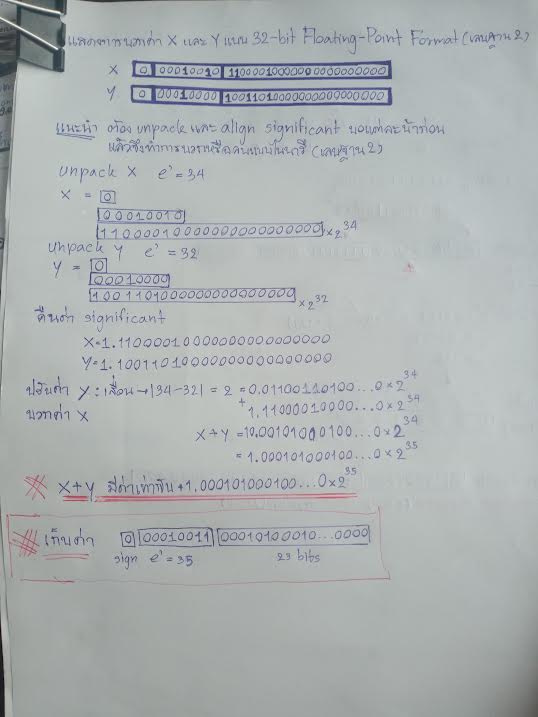 แสดงการบวกค่า X และ Y แบบ 32-bit Floating-Point Format (เลขฐาน 2)
X 0 00010010 11000010000000000000000
Y 0 00010000 10011010000000000000000
แนะนำ ต้อง unpack และ align significant ของแต่ละน้ำก่อน
แล้วจึงทำการบวกหรือลบแบบไบนารี (เลขฐาน 2)
unpack X e' = 34
X = 0
00010010
11000010000000000000000 × 2^34
unpack Y e' = 32
Y = 0
00010000
10011010000000000000000 × 2^32
คืนค่า significant
X = 1.11000010000000000000000
Y = 1.10011010000000000000000
ปรับค่า Y : เลื่อน → |34-32| = 2 = 0.01100110100...0 × 2^34
บวกค่า X + 1.11000010000...0 × 2^34
X + Y = 10.00101000100...0 × 2^34
= 1.000101000100...0 × 2^35
X + Y มีค่าเท่ากับ + 1.000101000100...0 × 2^35
เก็บค่า 0 00010011 00010100010...0000
sign e' = 35 23 bits